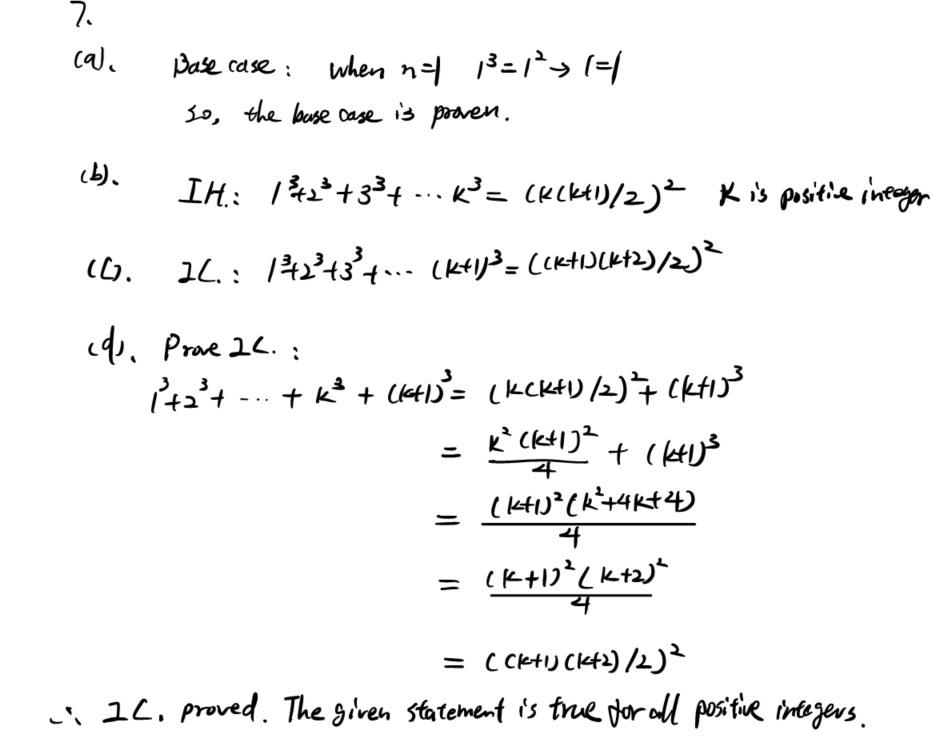 7.
(a). Base case: when n=1 1³=1²→1=1
so, the base case is proven.
(b). IH.: 1³+2³+3³+ ... k³ = (k(k+1)/2)² K is positive integer
(C). IC.: 1³+2³+3³+... (k+1)³ = ((k+1)(k+2)/2)²
(d). Prove IC.:
1³+2³+ ... + k³ + (k+1)³ = (k(k+1)/2)² + (k+1)³
= k²(k+1)²/4 + (k+1)³
= (k+1)²(k²+4k+4)/4
= (k+1)²(k+2)²/4
= ((k+1)(k+2)/2)²
∴ IC. proved. The given statement is true for all positive integers.